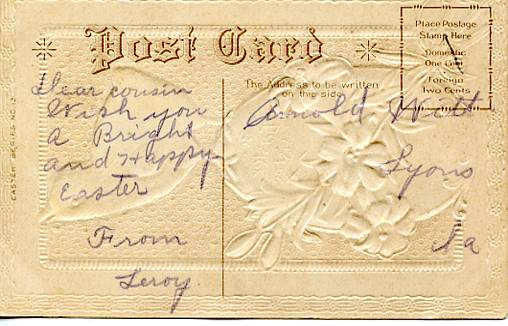 Post Card
Place Postage
Stamp Here
Domestic
One Cent
Foreign
Two Cents
The Address to be written
on this side
Dear cousin
Wish you
a Bright
and Happy
Easter
From
Leroy.
Arnold Witt
Lyons
Ia
EASTER SERIES NO.